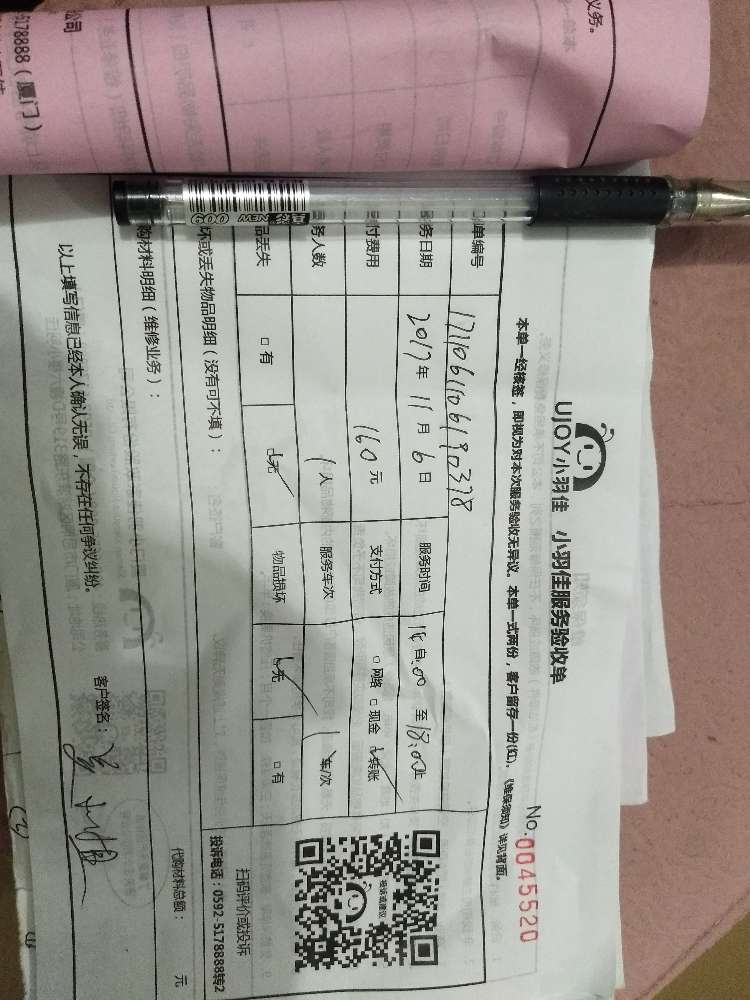 义务。
公司
5178888（厦门）
UJOY小羽佳 小羽佳服务验收单
No.0045520
本单一经核签，即视为对本次服务验收无异议。本单一式两份，客户留存一份(红)，《维保须知》详见背面。
单编号 1711061106190378
务日期 2017年11月6日 服务时间 自 至18:00止
付费用 160元 支付方式 □网络 □现金 ☑转账
务人数 1人 服务车次 1车/次
品丢失 □有 ☑无 物品损坏 ☑无 □有
坏或丢失物品明细（没有可不填）：
投诉或建议
扫码评价或投诉
投诉电话：0592-5178888转2
购材料明细（维修业务）：
代购材料总额： 元
以上填写信息已经本人确认无误，不存在任何争议纠纷。
客户签名：